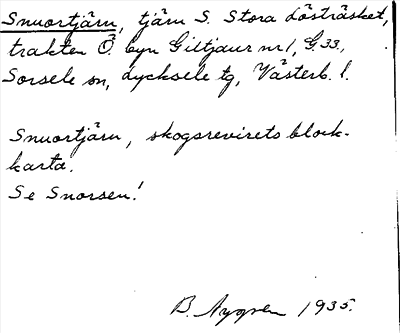 Snuortjärn, tjärn S. Stora Lösträsket,
trakten Ö. byn Giltjaur nr 1, G.33,
Sorsele sn, Lycksele tg, Västerb. l.
Snuortjärn, skogsrevirets block-
karta.
Se Snorsen!
B. Nygren 1935.